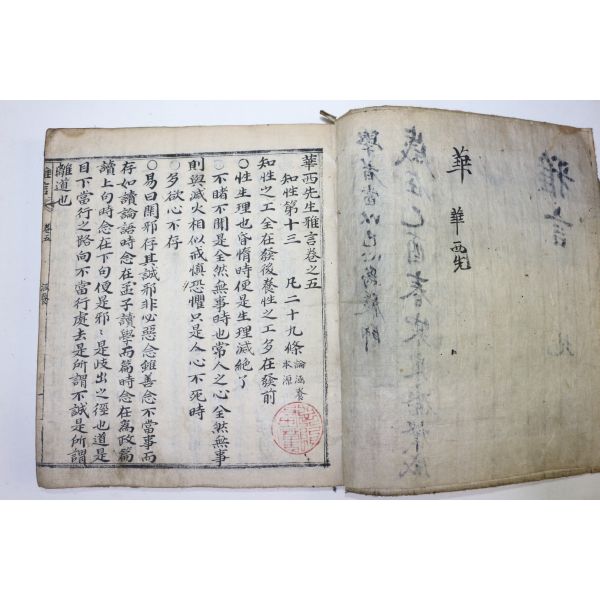 雅言
歲在乙酉春
學者當以己心爲嚴師
華
華西先
華西先生雅言卷之五
知性第十三 凡二十九條 論涵養本源
知性之工全在發後養性之工多在發前
○性生理也昏惰時便是生理滅絶了
○不睹不聞是全然無事時也常人之心全然無事
則與滅火相似戒愼恐懼只是人心不死時
○多欲心不存
○易曰閑邪存其誠邪非必惡念雖善念不當事而
存如讀論語時念在孟子讀學而篇時念在爲政篇
讀上句時念在下句便是邪邪是歧出之徑也道是
目下當行之路向不當行處去是所謂不誠是所謂
離道也
雅言 卷五